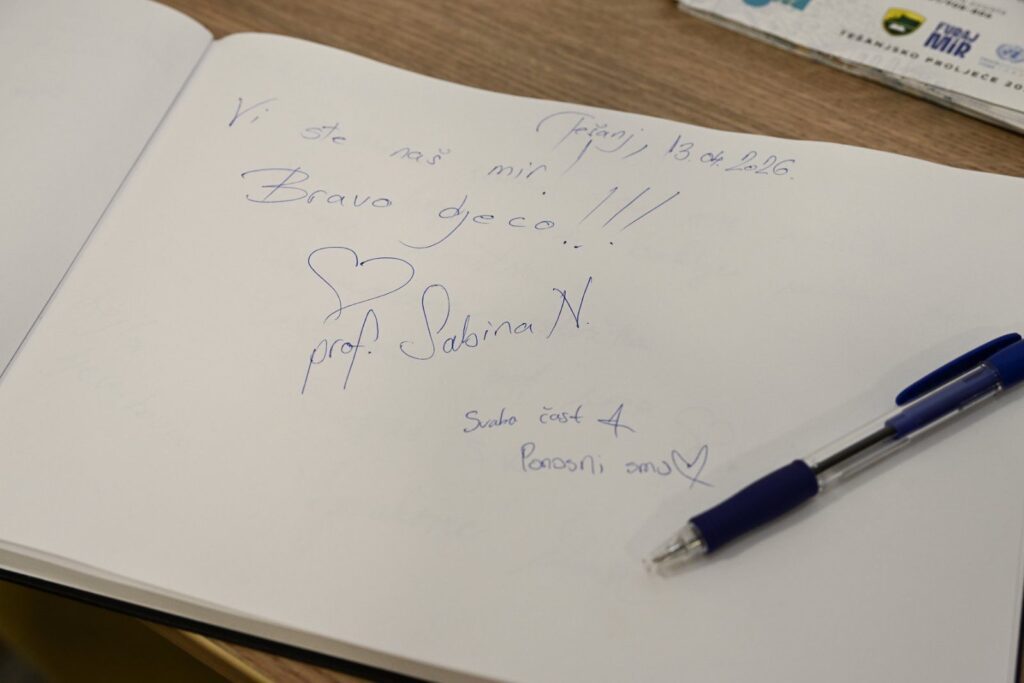 Tešanj, 13.04.2026.
Vi ste naš mir!
Bravo djeco!!!
prof. Sabina N.
Svaka čast
Ponosni smo
FURAJ
MIR
TEŠANJSKO PROLJEĆE 20